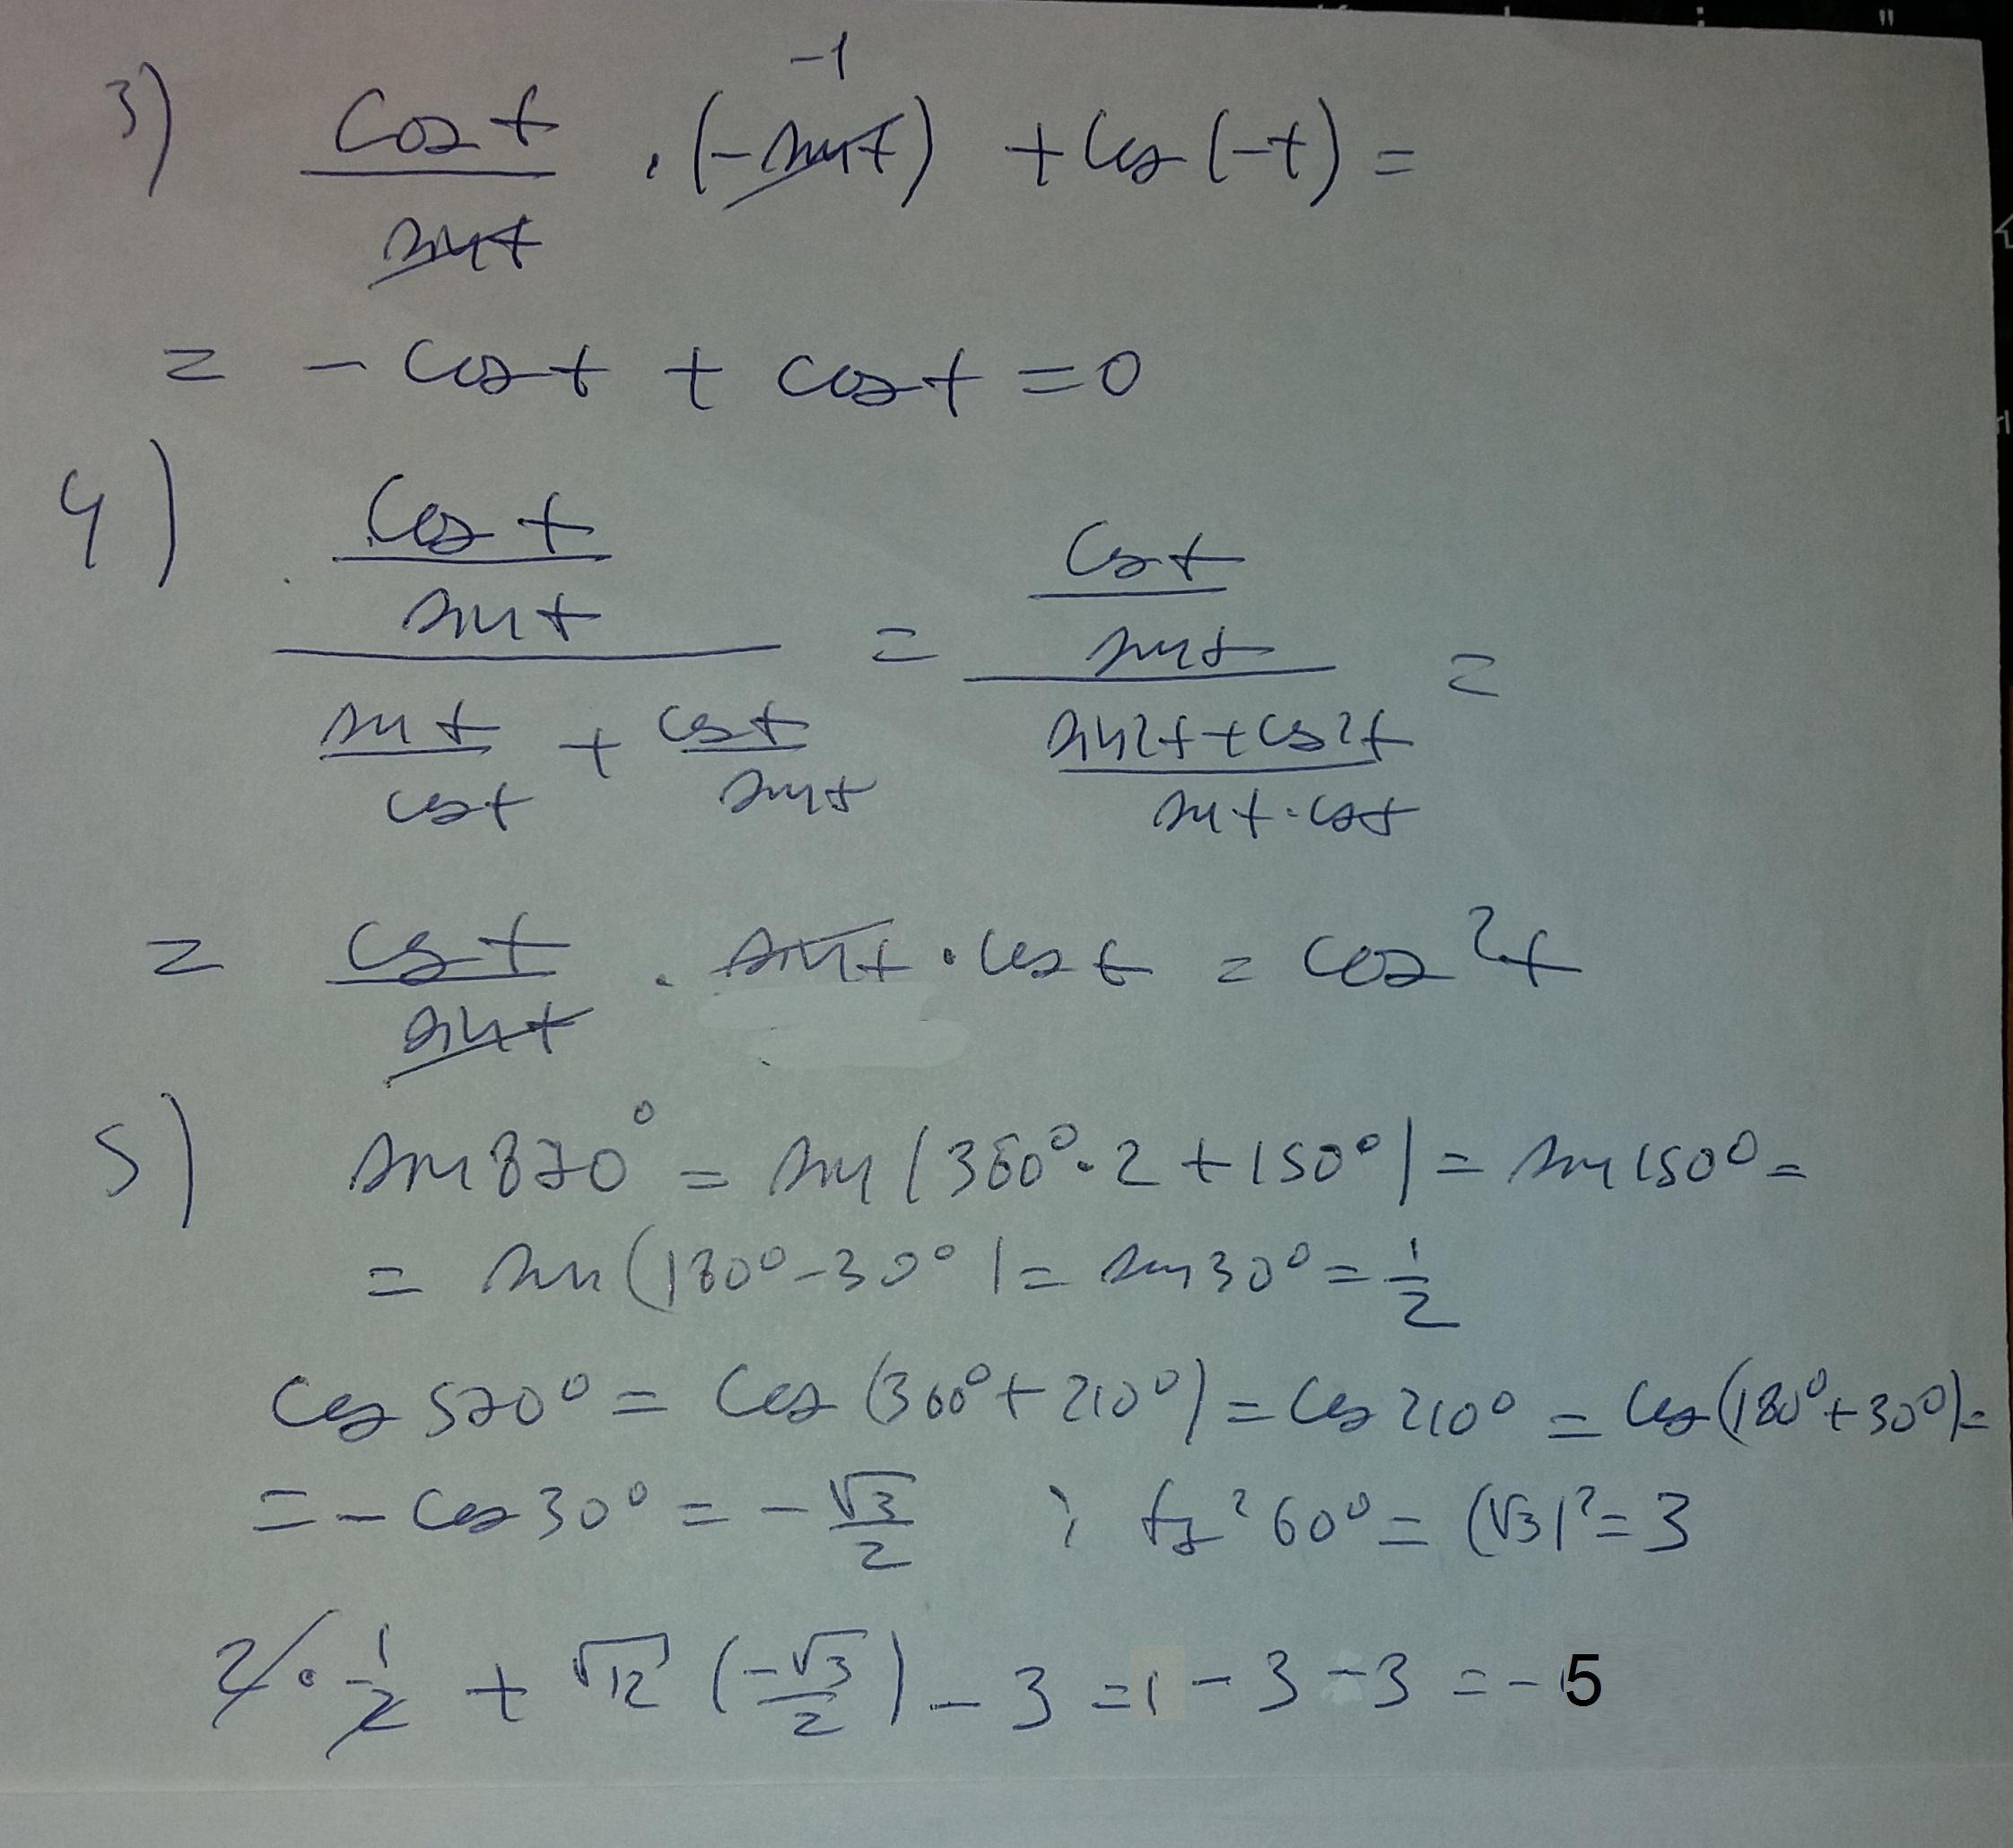 3) cos t / sin t · (-sin t) -1 + cos (-t) =
= - cos t + cos t = 0
4) (cos t / sin t) / (sin t / cos t + cos t / sin t) = (cos t / sin t) / ((sin²t + cos²t) / (sin t · cos t)) =
= cos t / sin t · sin t · cos t = cos² t
5) sin 870° = sin (360° · 2 + 150°) = sin 150° =
= sin (180° - 30°) = sin 30° = 1/2
cos 570° = cos (360° + 210°) = cos 210° = cos (180° + 30°) =
= - cos 30° = - √3/2 ; tg² 60° = (√3)² = 3
2 · 1/2 + √12 (-√3/2) - 3 = 1 - 3 - 3 = - 5